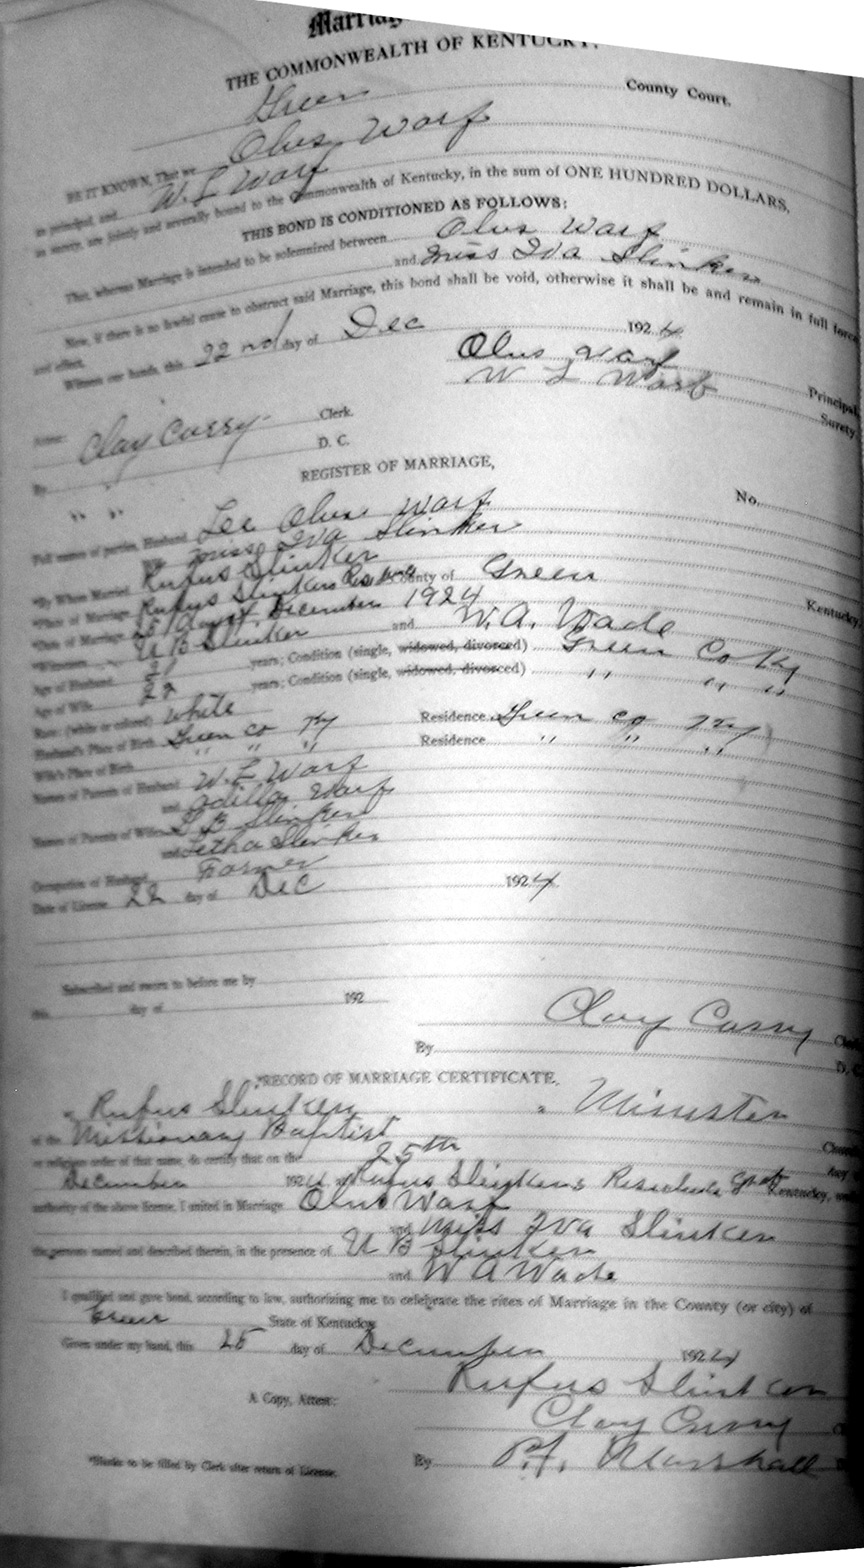 Marriag
THE COMMONWEALTH OF KENTUCKY.
Green County Court.
BE IT KNOWN, That we Olus Warf
as principal, and W. L Warf
as surety, are jointly and severally bound to the Commonwealth of Kentucky, in the sum of ONE HUNDRED DOLLARS.
THIS BOND IS CONDITIONED AS FOLLOWS:
That, whereas Marriage is intended to be solemnized between Olus Warf
and Miss Iva Slinker
Now, if there is no lawful cause to obstruct said Marriage, this bond shall be void, otherwise it shall be and remain in full force
and effect.
Witness our hands, this 22nd day of Dec 1924
Olus Warf Principal,
W L Warf Surety
Attest: Clay Curry Clerk.
By " " D. C.
REGISTER OF MARRIAGE,
No.
Full names of parties, Husband Lee Olus Warf
Miss Iva Slinker
*By Whom Married Rufus Slinker
*Place of Marriage Rufus Slinkers County of Green Kentucky
*Date of Marriage 25 December 1924
*Witnesses U B Slinker and W. A. Wade
Age of Husband 21 years; Condition (single, widowed, divorced) Green Co Ky
Age of Wife 22 years; Condition (single, widowed, divorced) " " "
Race (white or colored) White
Husband's Place of Birth Green co Ky Residence Green co Ky
Wife's Place of Birth " " " Residence " " "
Names of Parents of Husband W. L Warf
and Odilla Warf
Names of Parents of Wife B Slinker
and Letha Slinker
Occupation of Husband Farmer
Date of License 22 day of Dec 1924
Subscribed and sworn to before me by
this day of 192
Clay Curry Clerk
By D. C.
*RECORD OF MARRIAGE CERTIFICATE.
Rufus Slinker a Minister
of the Missionary Baptist Church
or religious order of that name, do certify that on the 25th day of
December 1924 at Rufus Slinkers Residence Kentucky, under
authority of the above license, I united in Marriage Olus Warf
and Miss Iva Slinker
the persons named and described therein, in the presence of U B Slinker
and W A Wade
I qualified and gave bond, according to law, authorizing me to celebrate the rites of Marriage in the County (or city) of
Green State of Kentucky
Given under my hand, this 25 day of December 1924
Rufus Slinker
A Copy, Attest: Clay Curry
By P. F. Marshall
*Blanks to be filled by Clerk after return of License.